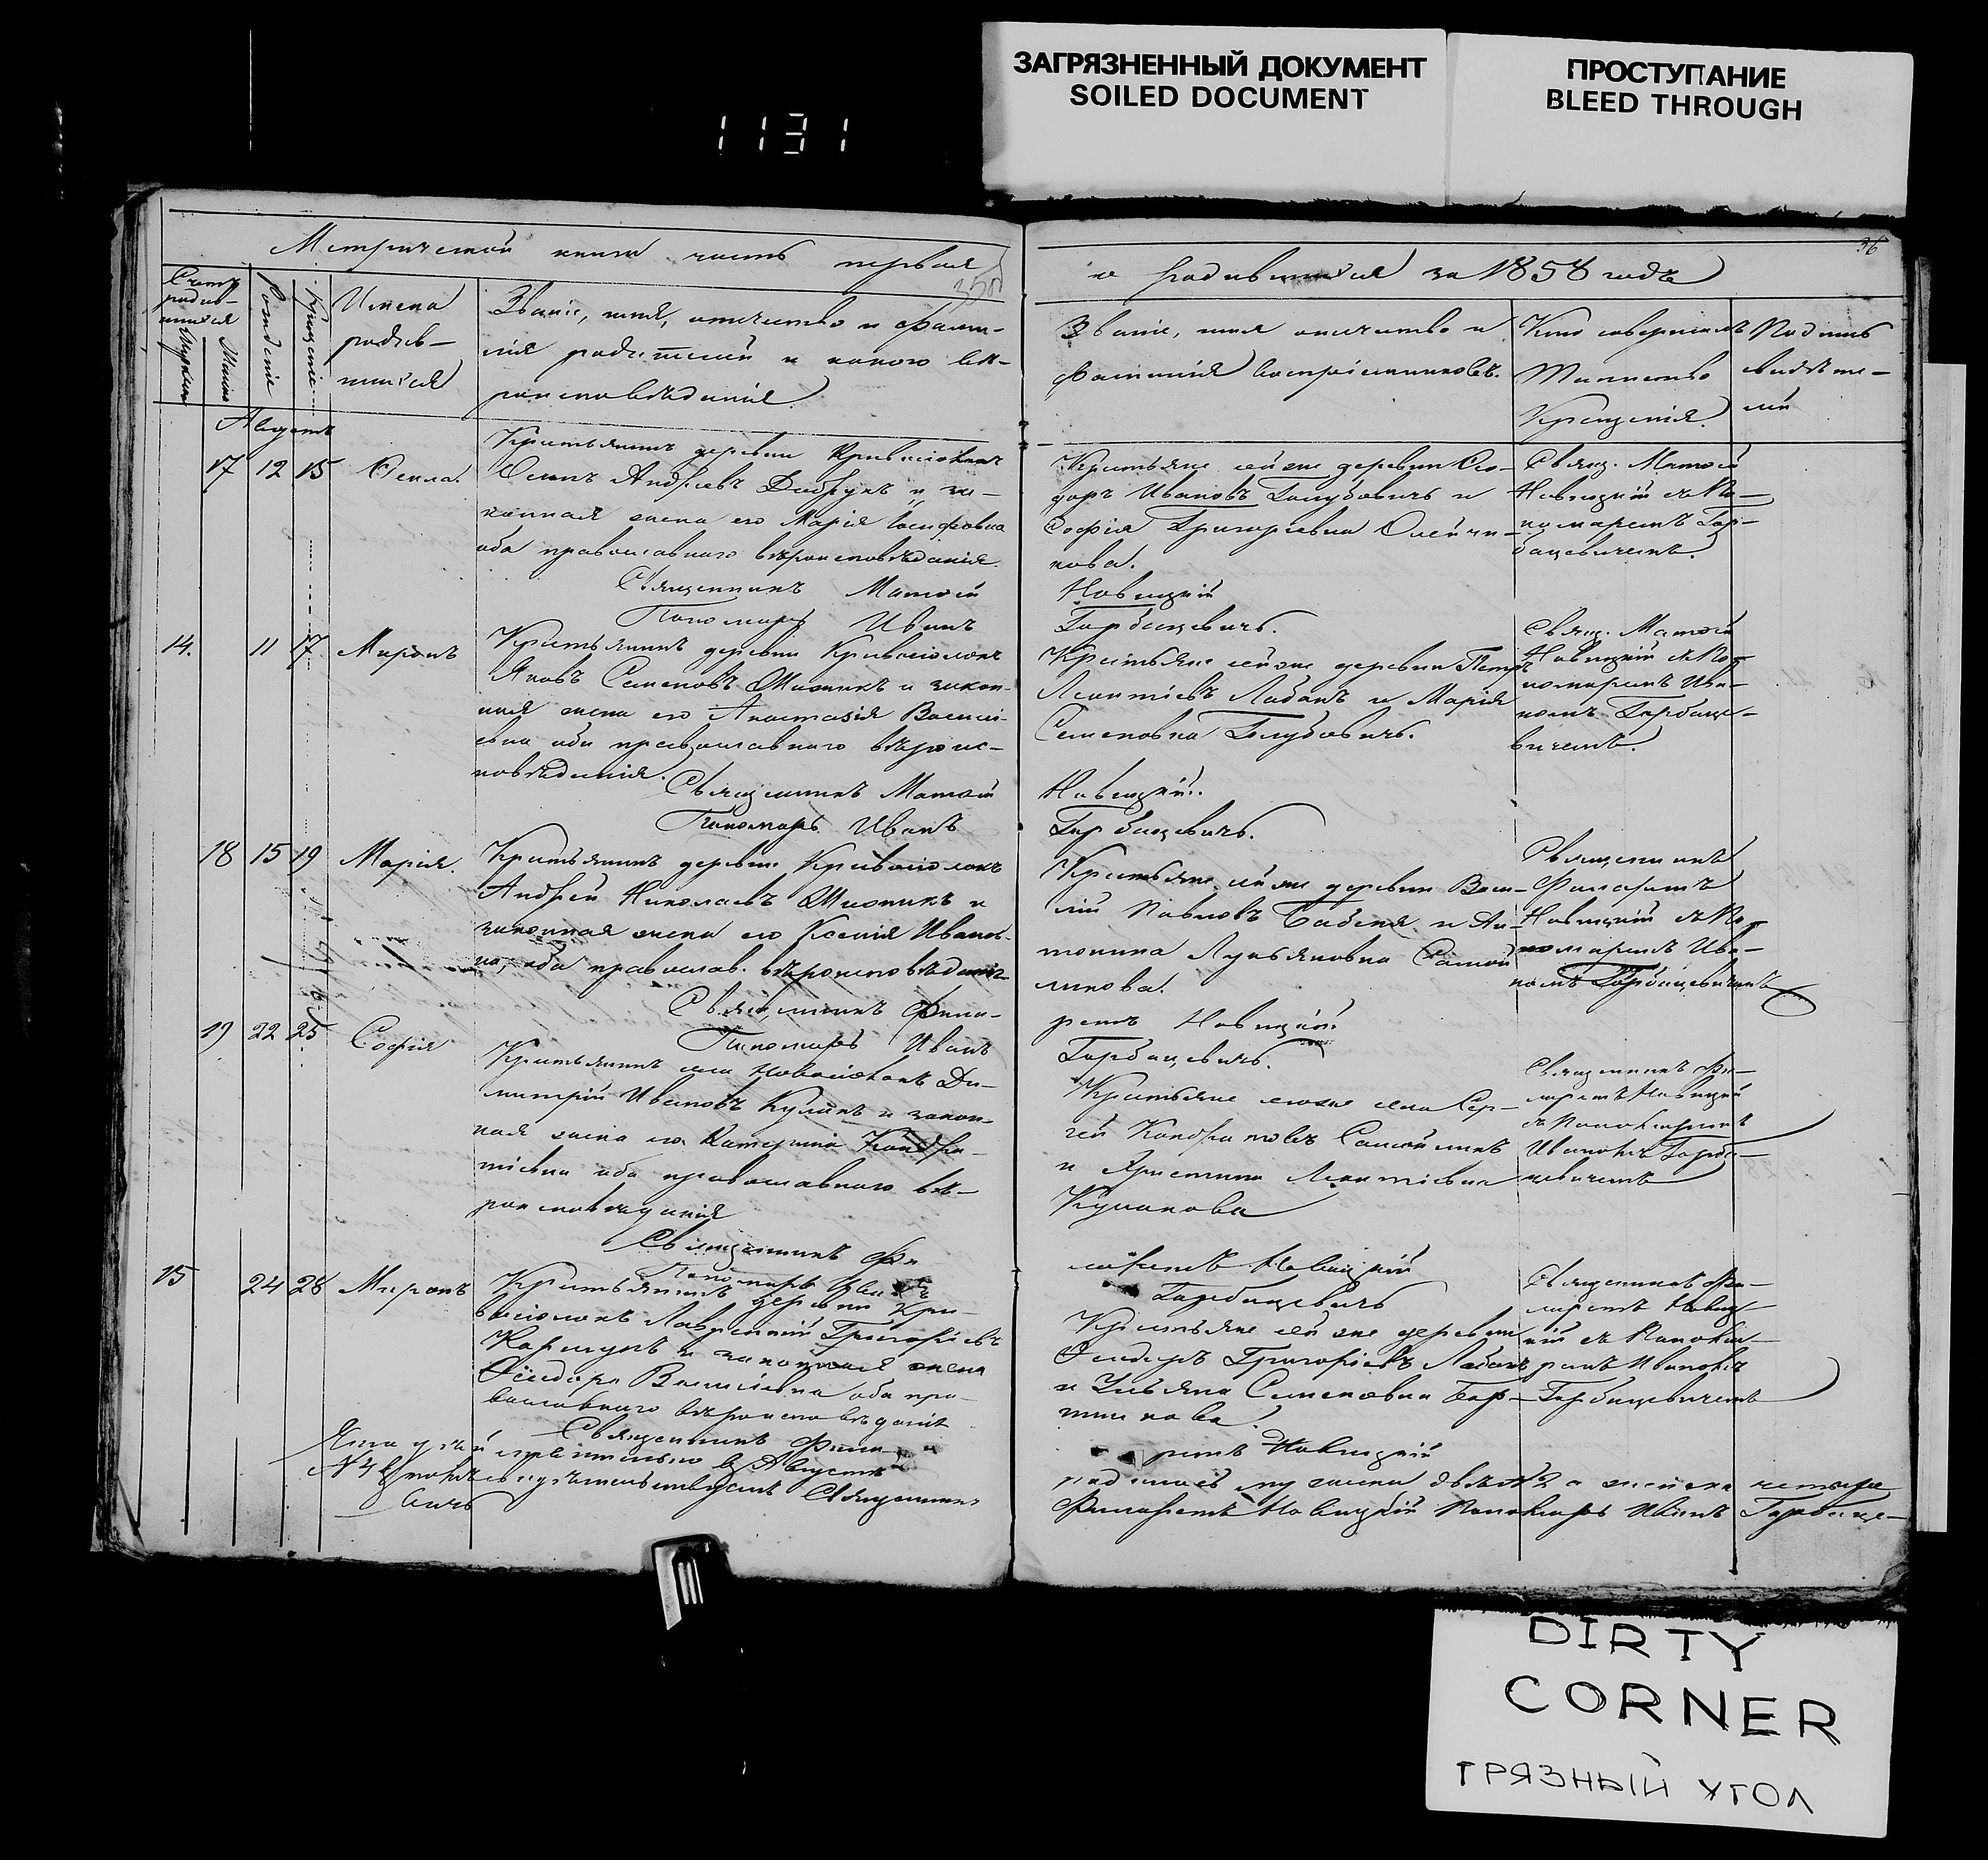 ЗАГРЯЗНЕННЫЙ ДОКУМЕНТ
SOILED DOCUMENT
ПРОСТУПАНИЕ
BLEED THROUGH
1131
Метрической книги часть первая
о родившихся за 1858 годъ
36
Счетъ родив-
шихся
Мужескъ
Женскъ
Рожденіе
Крещеніе
Имена
родив-
шихся
Званіе, имя, отчество и фами-
лія родителей и какого вѣ-
роисповѣданія.
Званіе, имя отчество и
фамилія воспріемниковъ.
Кто совершалъ
Таинство
Крещенія.
Подпись
свидѣте-
лей
Августъ
17 12 15 Ѳекла.
Крестьянинъ деревни Кривоселокъ
Осипъ Андреевъ и за-
конная жена его Марія Іосифовна
оба православнаго вѣроисповѣданія.
Священникъ Матѳей
Пономарь Иванъ
Крестьяне сей же деревни Ѳео-
доръ Ивановъ Голубовичъ и
Софія Григорьевна Олейни-
кова.
Новицкій
Горбацевичъ.
Свящ. Матѳей
Новицкій съ По-
номаремъ Гор-
бацевичемъ.
14. 11 17 Миронъ
Крестьянинъ деревни Кривоселокъ
Яковъ Семеновъ Шиникъ и закон-
ная жена его Анастазія Василі-
евна оба православнаго вѣроис-
повѣданія.
Священникъ Матѳей
Пономарь Иванъ
Крестьяне сей же деревни Петръ
Леонтіевъ Лабанъ и Марія
Семеновна Голубовичъ.
Новицкій.
Горбацевичъ.
Свящ. Матѳей
Новицкій съ По-
номаремъ Ива-
номъ Горбаце-
вичемъ.
18 15 19 Марія.
Крестьянинъ деревни Кривоселокъ
Андрей Николаевъ Шиникъ и
законная жена его Ксенія Иванов-
на, оба православ. вѣроисповѣданія
Священникъ Фила-
Пономарь Иванъ
Крестьяне сей же деревни Васи-
лій Павловъ Бабеня и Ан-
тонина Лукьяновна Самой-
ликова.
ретъ Новицкій
Горбацевичъ.
Священникъ
Филаретъ
Новицкій съ По-
номаремъ Ива-
номъ Горбацевичемъ
19 22 25 Софія
Крестьянинъ села Новоселокъ Ди-
митрій Ивановъ Кулакъ и закон-
ная жена его Катерина Кондра-
тіевна оба православнаго вѣ-
роисповѣданія
Священникъ Фи-
Пономарь Иванъ
Крестьяне сего же села Сер-
гей Кондратовъ Самойликъ
и Христина Леонтіевна
Кулакова
ларетъ Новицкій
Горбацевичъ
Священникъ Фи-
ларетъ Новицкій
съ Пономаремъ
Иваномъ Горба-
цевичемъ
15 24 28 Миронъ
Крестьянинъ деревни Кри-
воселокъ Лаврентій Григоріевъ
и законная жена
Ѳеодора Василіевна оба пра-
вославнаго вѣроисповѣданія
Священникъ Фила-
Крестьяне сей же деревни
Ѳеодоръ Григоріевъ Лабанъ
и Ульяна Семеновна Бар-
ретъ Новицкій
Священникъ Фи-
ларетъ Новиц-
кій съ Понома-
ремъ Иваномъ
Горбацевичемъ
Августѣ
родилось
Священникъ
Филаретъ Новицкій Пономарь Иванъ Горбаце-
вичъ
DIRTY
CORNER
ГРЯЗНЫЙ УГОЛ